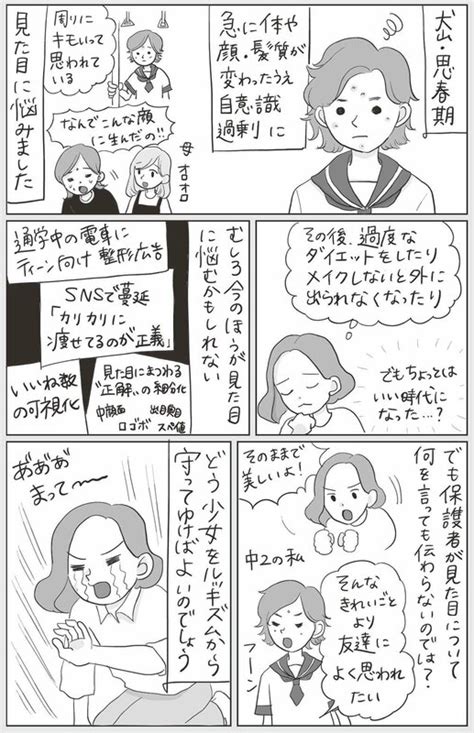 犬山・思春期
急に体や
顔・髪質が
変わったうえ
自意識
過剰に
周りに
キモいって
思われて
いる
なんでこんな顔
に生んだの!!
母
オロオロ
見た目に悩みました
その後、過度な
ダイエットをしたり
メイクしないと外に
出られなくなったり
でもちょっとは
いい時代に
なった…?
むしろ今のほうが見た目
に悩むかもしれない
通学中の電車に
ティーン向け整形広告
SNSで蔓延
「カリカリに
痩せてるのが正義」
見た目にまつわる
"正解"の細分化
中顔面
ロゴボ
スペ値
いいね数
の可視化
でも保護者が見た目について
何を言っても伝わらないのでは?
そのままで
美しいよ!
中2の私
そんな
きれいごと
より
友達に
よく思われ
たい
フーン
どう少女をルッキズムから
守ってゆけばよいのでしょう
あ゛あ゛あ゛
まって〜